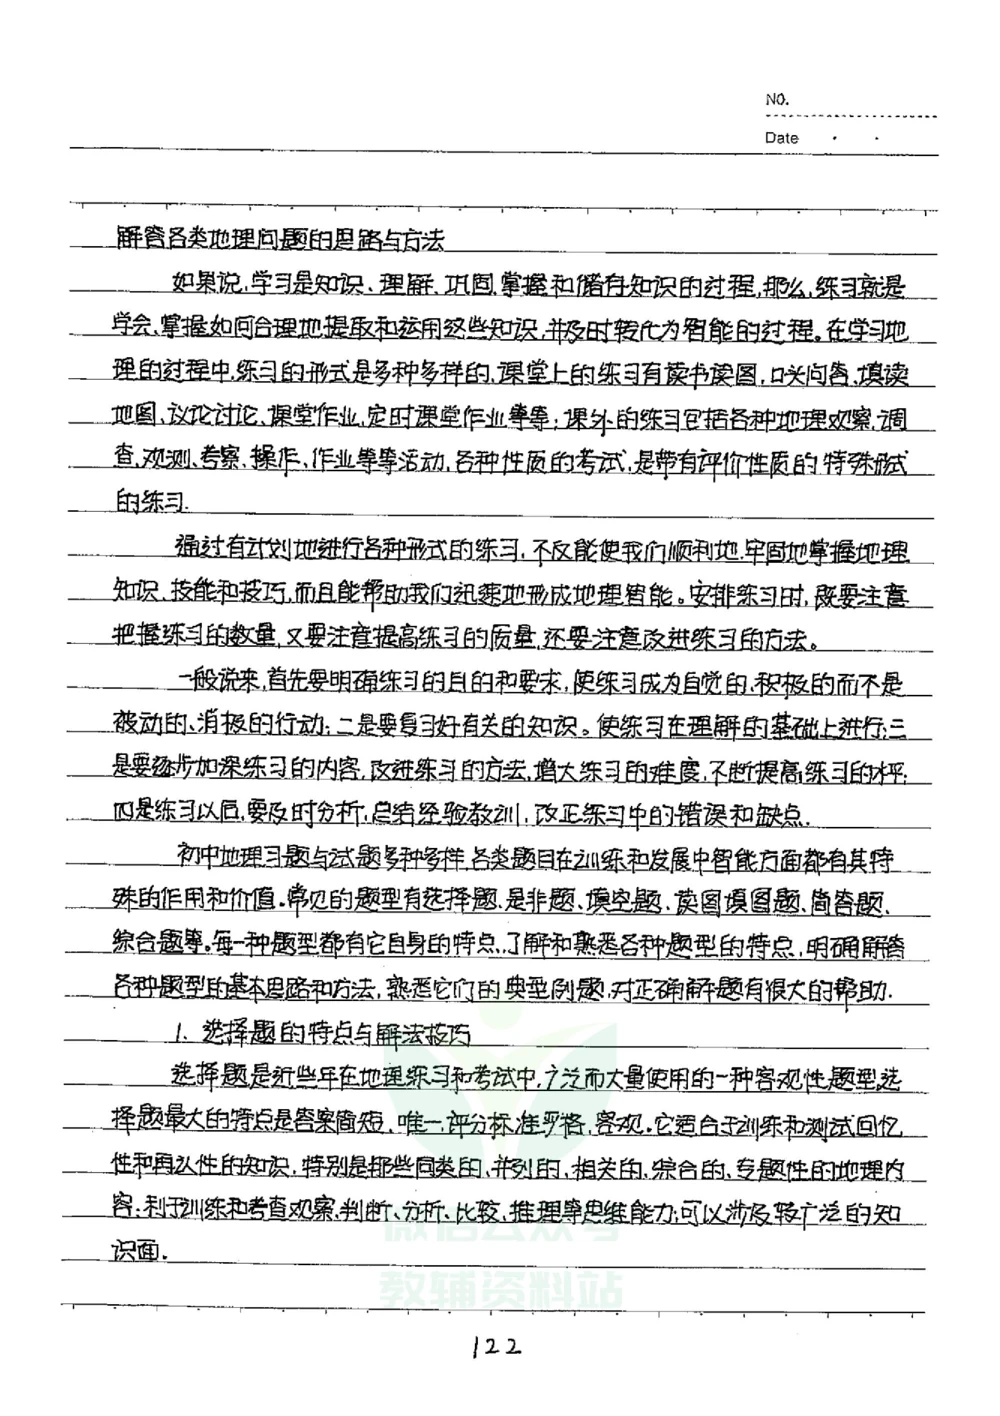 NO.
Date
解答各类地理问题的思路与方法
如果说,学习是知识、理解、巩固,掌握和储存知识的过程,那么,练习就是
学会、掌握如何合理地提取和运用这些知识,并及时转化为智能的过程。在学习地
理的过程中,练习的形式是多种多样的,课堂上的练习有读书读图,口头问答,填读
地图、议论讨论、课堂作业,定时课堂作业等等;课外的练习包括各种地理观察,调
查,观测、考察、操作、作业等等活动,各种性质的考试,是带有评价性质的特殊形式
的练习.
通过有计划地进行各种形式的练习,不反能使我们顺利地,牢固地掌握地理
知识、技能和技巧,而且能帮助我们迅速地形成地理智能。安排练习时,既要注意
把握练习的数量,又要注意提高练习的质量,还要注意改进练习的方法。
一般说来,首先要明确练习的目的和要求,使练习成为自觉的,积极的而不是
被动的、消极的行动;二是要复习好有关的知识。使练习在理解的基础上进行;三
是要逐步加深练习的内容,改进练习的方法,增大练习的难度,不断提高练习的水平;
四是练习以后,要及时分析,总结经验教训,改正练习中的错误和缺点.
初中地理习题与试题多种多样,各类题目在训练和发展中智能方面都有其特
殊的作用和价值.常见的题型有选择题、是非题、填空题、读图填图题、简答题、
综合题等。每一种题型都有它自身的特点.了解和熟悉各种题型的特点,明确解答
各种题型的基本思路和方法,熟悉它们的典型例题,对正确解题有很大的帮助.
1、选择题的特点与解法技巧
选择题是近些年在地理练习和考试中,广泛而大量使用的一种客观性题型,选
择题最大的特点是答案简短、唯一,评分标准严格,客观.它适合于训练和测试回忆
性和再认性的知识,特别是那些同类的、并列的、相关的、综合的、专题性的地理内
容,利于训练和考查观察、判断、分析、比较、推理等思维能力;可以涉及较广泛的知
识面.
微信公众号
教辅资料站
122